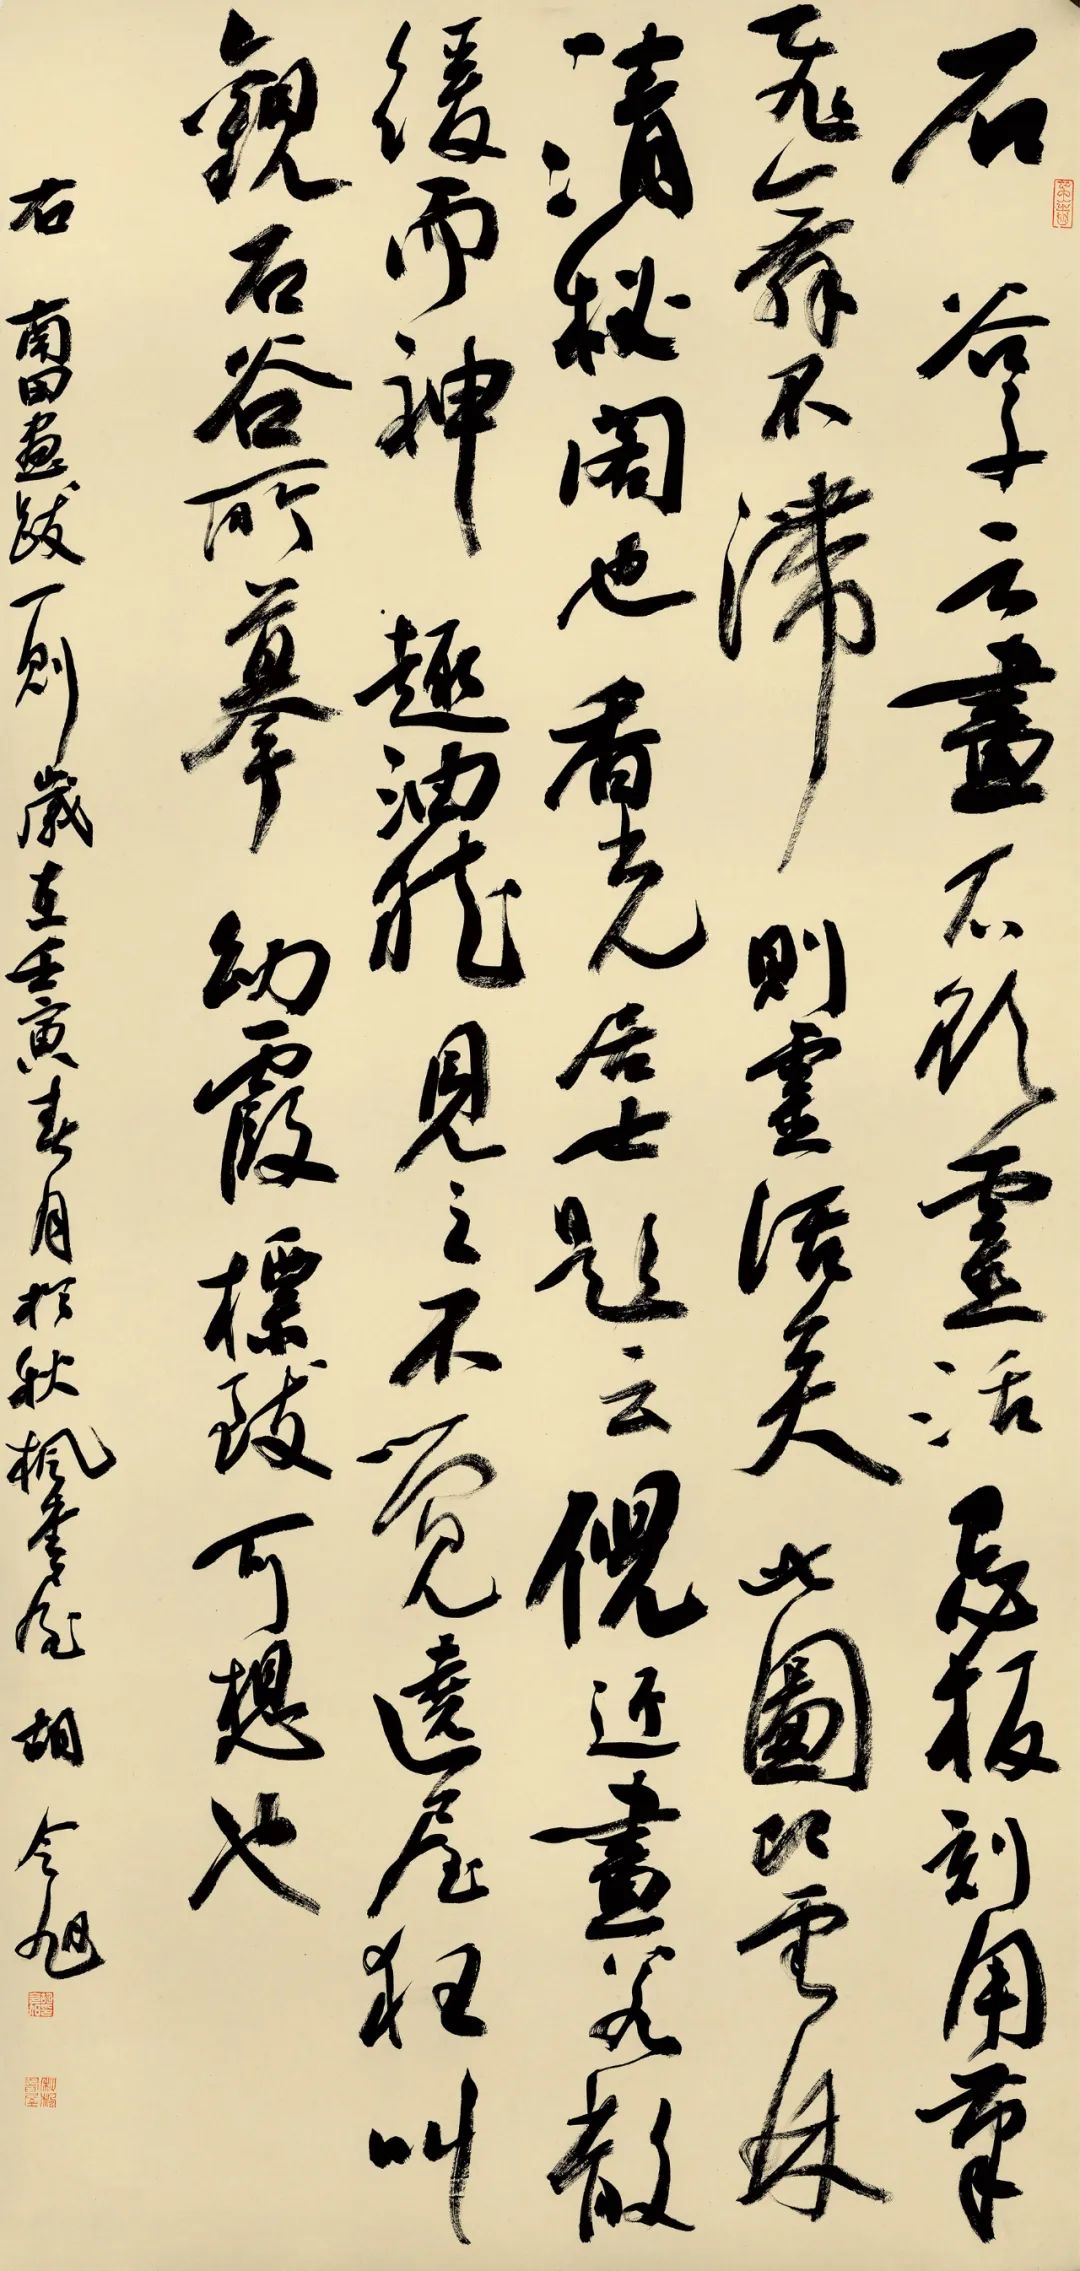 石谷子云畫不欲靈活忌板刻用筆
飛舞不滯則靈活矣此圖即雲林
清秘閣也香光居士題云倪迂畫若散
緩而神趣油然見之不覺遶屋狂叫
觀石谷所摹幼霞標致可想也
右南田畫跋一則歲在壬寅春月於秋楓書屋胡令旭